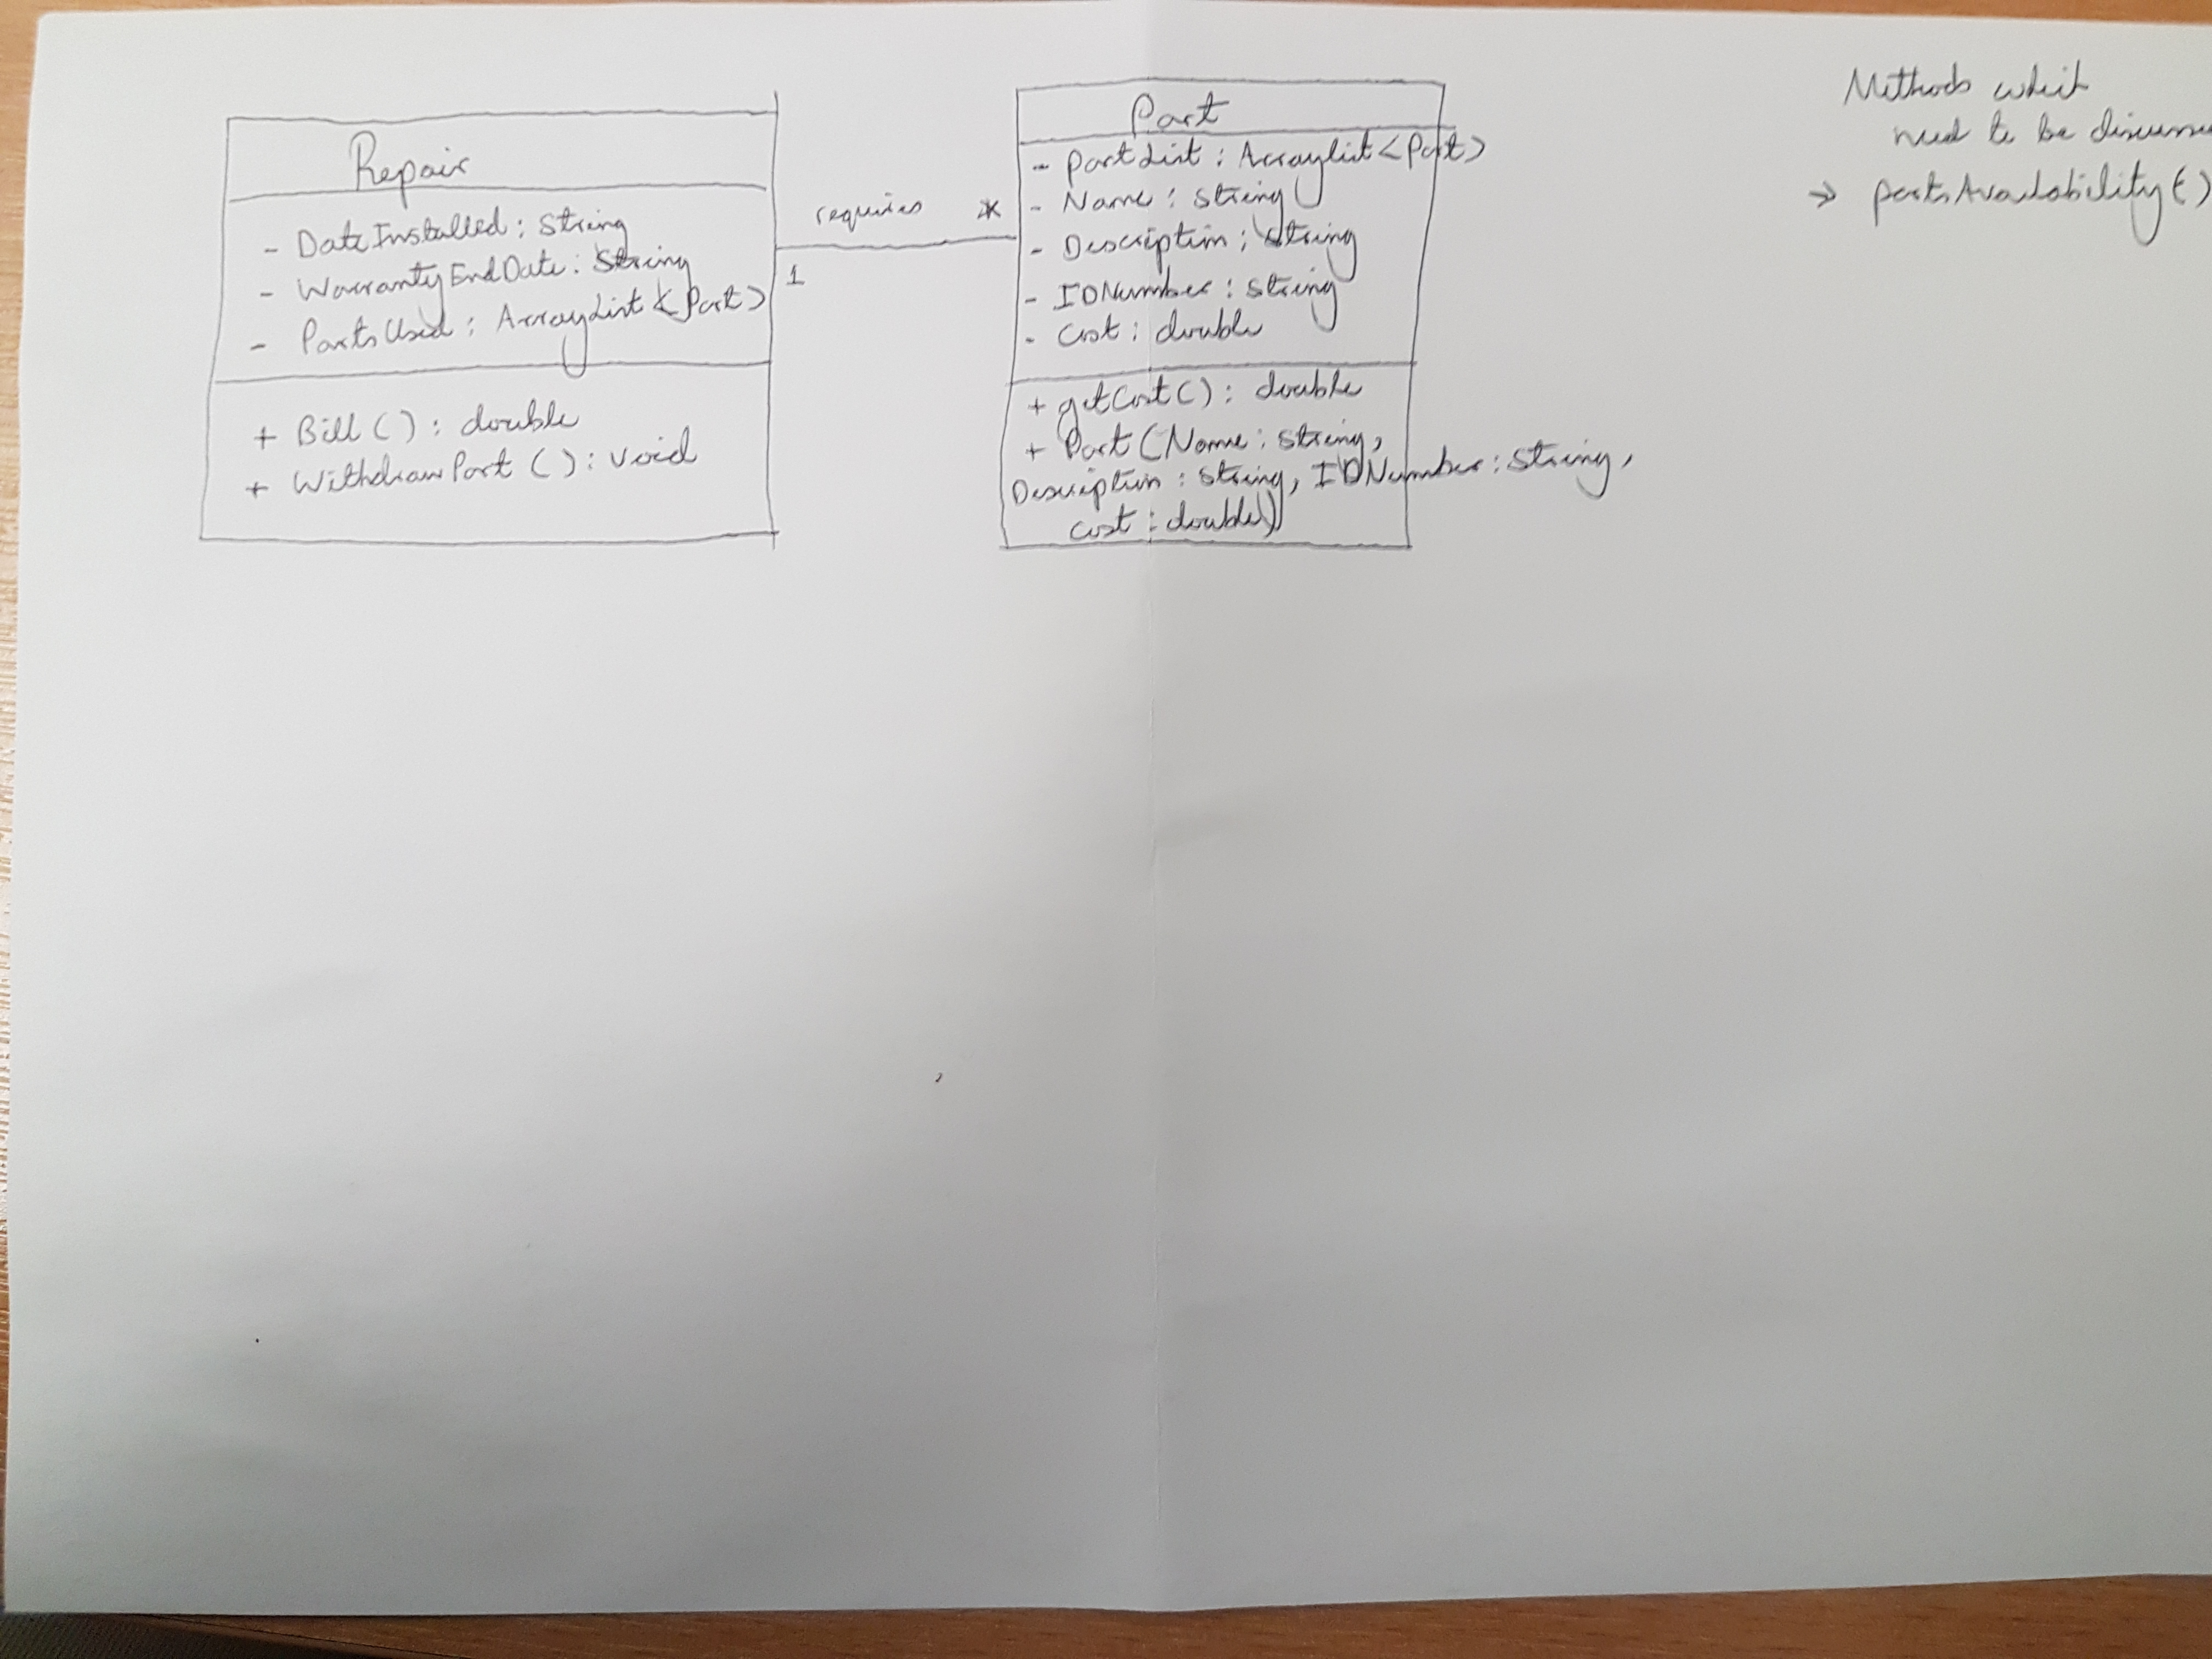 Repair
- DateInstalled : String
- WarrantyEndDate : String
- PartsUsed : ArrayList <Part>
+ Bill ( ) : double
+ WithdrawPart ( ) : void
requires *
1
Part
- PartList : Arraylist <Part>
- Name : string
- Description : string
- IDNumber : string
- Cost : double
+ getCost ( ) : double
+ Part (Name : string,
Description : string, IDNumber : string,
cost : double)
Methods which
need to be
→ partsAvailability ( )